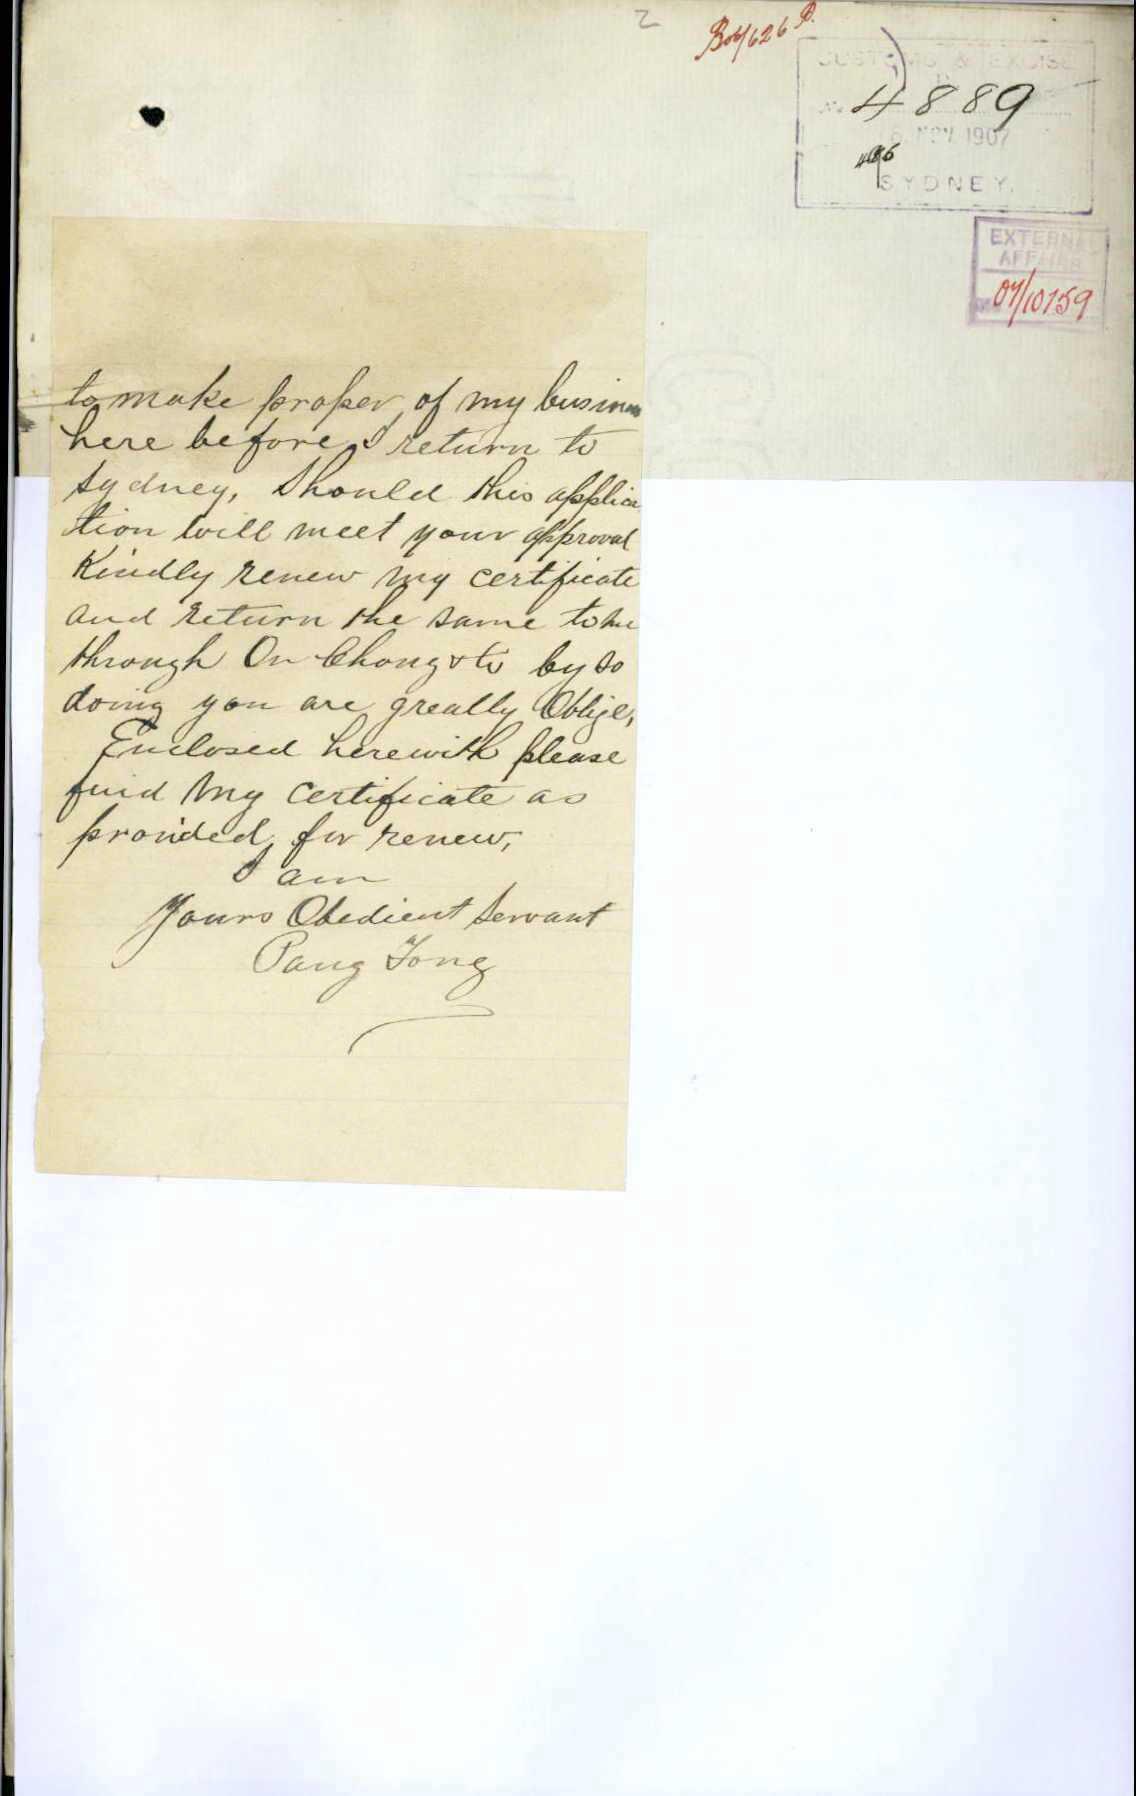 2
B06/626 P.
CUSTOMS & EXCISE
No 4889
6 NOV 1907
SYDNEY.
EXTERNAL
AFFAIRS
07/10759
to make proper of my business
here before I return to
Sydney, Should this applica
tion will meet your approval
Kindly renew my certificate
and return the same to me
through On Chong & Co by so
doing you are greatly Oblige,
Enclosed herewith please
find my certificate as
provided for renew,
I am
Yours Obedient Servant
Pang Tong